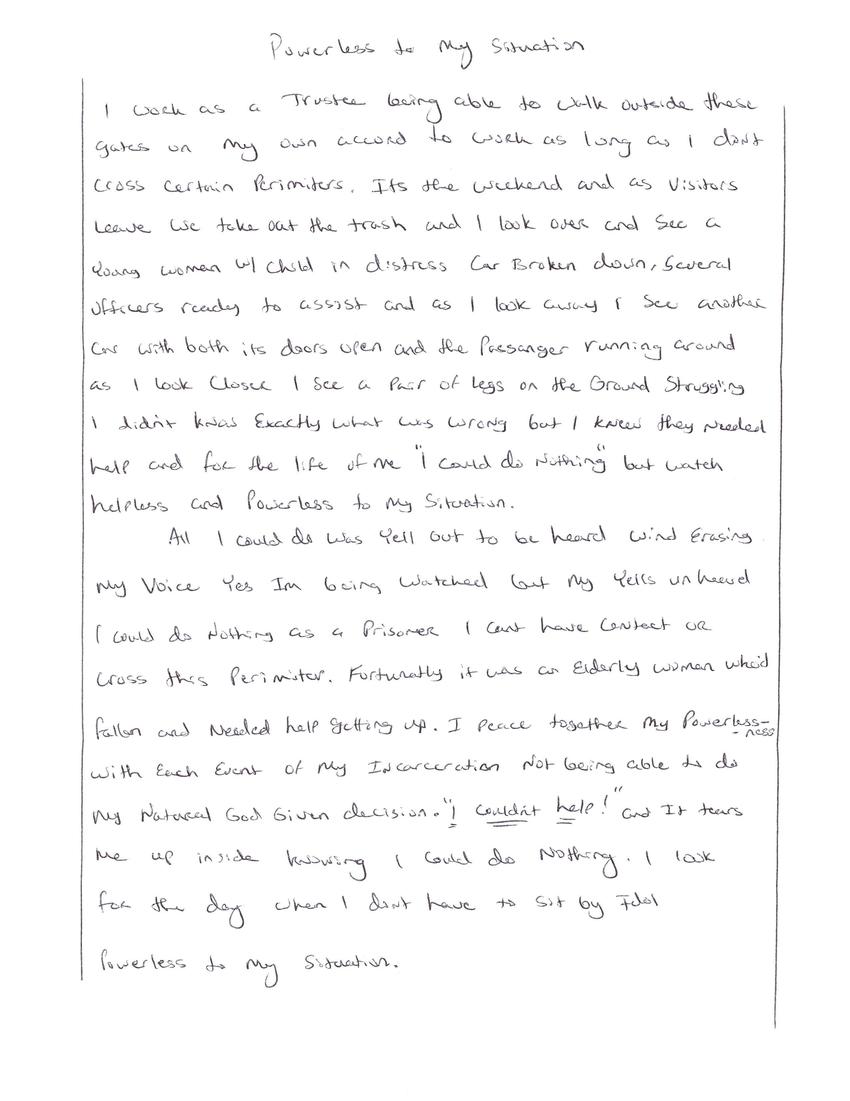 Powerless to My Situation
I work as a Trustee being able to walk outside these
gates on my own accord to work as long as I dont
Cross Certain Perimiters. Its the weekend and as Visitors
Leave we take out the trash and I look over and See a
Young women w/ Child in distress Car Broken down, Several
Officers ready to assist and as I look away I See another
Car with both its doors open and the Passanger running around
as I look Closer I See a Pair of legs on the Ground Struggling
I didn't know Exactly what was wrong but I knew they Needed
help and for the life of me "I could do Nothing" but watch
helpless and Powerless to My Situation.
All I could do was Yell out to be heard wind Erasing
My Voice Yes Im being Watched but My Yells unheard
I could do Nothing as a Prisoner I cant have Contact or
Cross this Perimiter. Fortunatly it was an Elderly woman who'd
fallen and Needed help getting up. I Peace together My Powerless-
-ness
with Each Event of My Incarceration Not being able to do
My Natural God Given decision. "I couldn't help!" and It tears
Me up inside knowing I Could do Nothing. I look
for the day when I don't have to Sit by Idol
Powerless to My Situation.